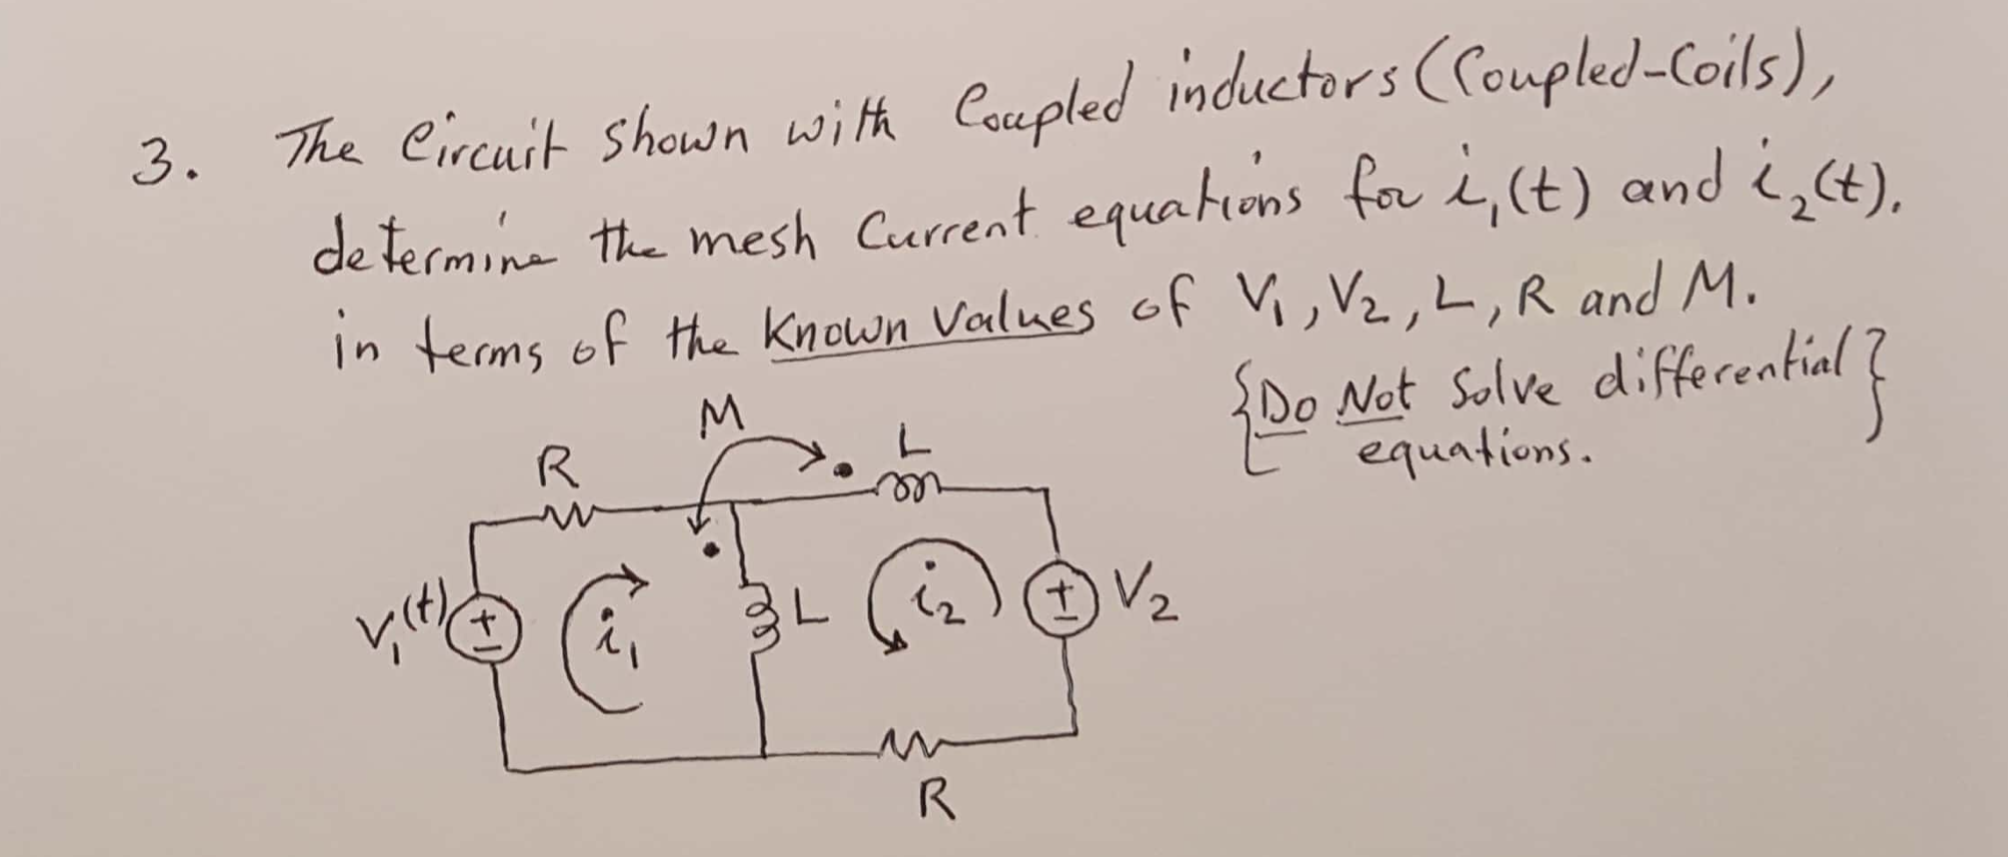 3. The Circuit shown with Coupled inductors (Coupled-Coils),
determine the mesh Current equations for i₁(t) and i₂(t).
in terms of the Known Values of V₁, V₂, L, R and M.
{Do Not Solve differential}
equations.
M
L
R
V₁(t)
+
−
i₁
L
i₂
+
−
V₂
R